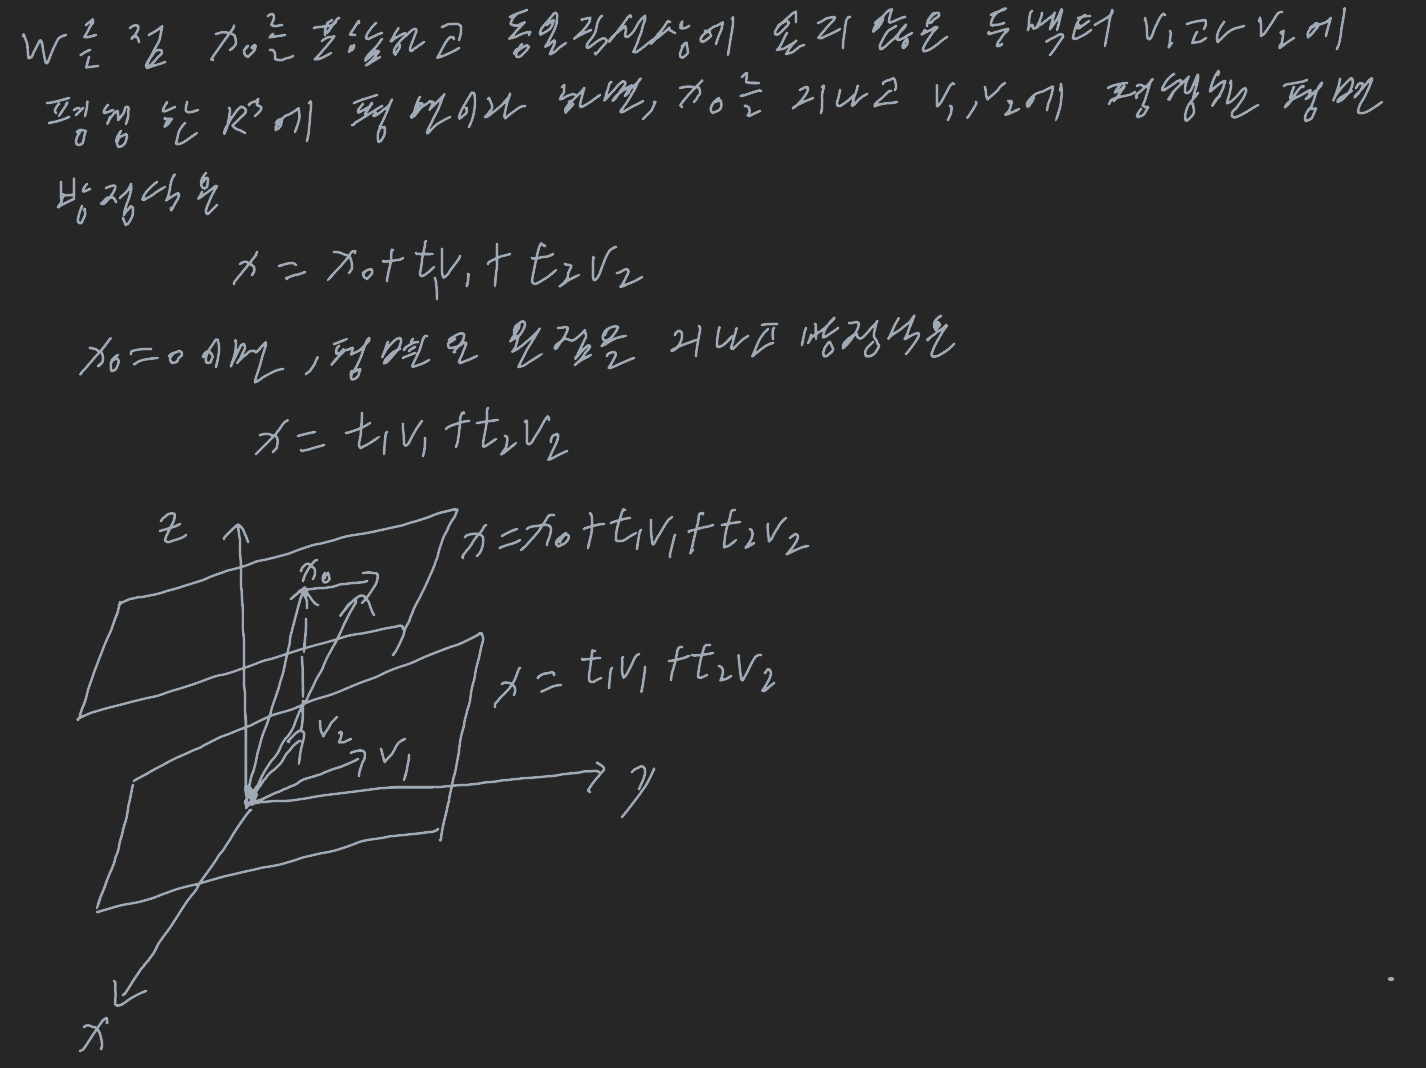 W는 점 x₀를 포함하고 동일직선상에 놓이지 않은 두 벡터 v₁과 v₂에
평행한 R³의 평면이라 하면, x₀를 지나고 v₁, v₂에 평행한 평면
방정식은
x = x₀ + t₁v₁ + t₂v₂
x₀ = 0 이면, 평면은 원점을 지나고 방정식은
x = t₁v₁ + t₂v₂
z
x = x₀ + t₁v₁ + t₂v₂
x₀
x = t₁v₁ + t₂v₂
v₂
v₁
y
x